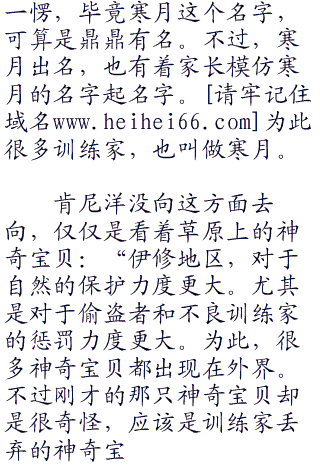 一愣，毕竟寒月这个名字，
可算是鼎鼎有名。不过，寒
月出名，也有着家长模仿寒
月的名字起名字。[请牢记住
域名www.heihei66.com]为此
很多训练家，也叫做寒月。
肯尼洋没向这方面去
向，仅仅是看着草原上的神
奇宝贝：“伊修地区，对于
自然的保护力度更大。尤其
是对于偷盗者和不良训练家
的惩罚力度更大。为此，很
多神奇宝贝都出现在外界。
不过刚才的那只神奇宝贝却
是很奇怪，应该是训练家丢
弃的神奇宝